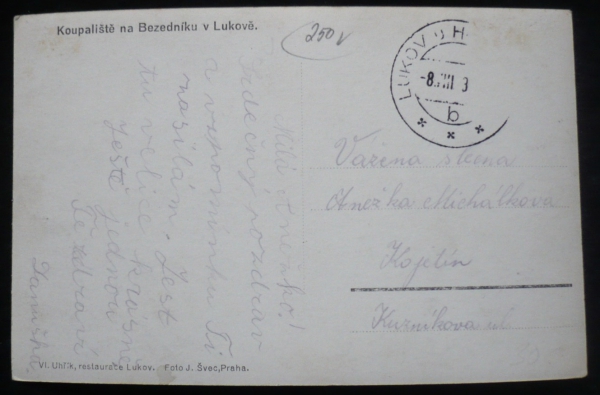 Koupaliště na Bezedníku v Lukově.
250,-
LUKOV u H
-8.VIII 3
b
Milá
Srdečný pozdrav
a vzpomínku Ti
nasílám. Jest
tu velice krásně
Ještě jednou
Tě zdraví
Vážena slečna
Anežka Michálkova
Kojetín
ul
Vl. Uhlík, restaurace Lukov. Foto J. Švec, Praha.